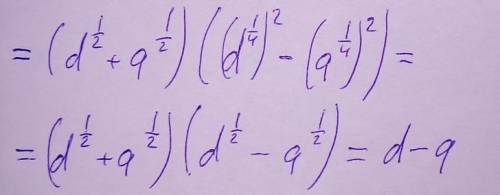 = (d^{1/2} + q^{1/2}) ((d^{1/4})^2 - (q^{1/4})^2) =
= (d^{1/2} + q^{1/2}) (d^{1/2} - q^{1/2}) = d - q